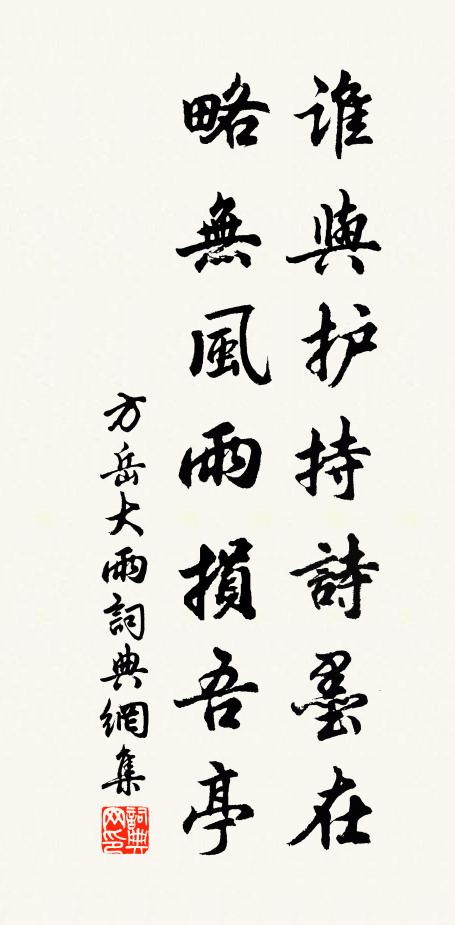 誰與护持詩墨在
略無風雨損吾亭
方岳大雨詞典網集
詞典网印